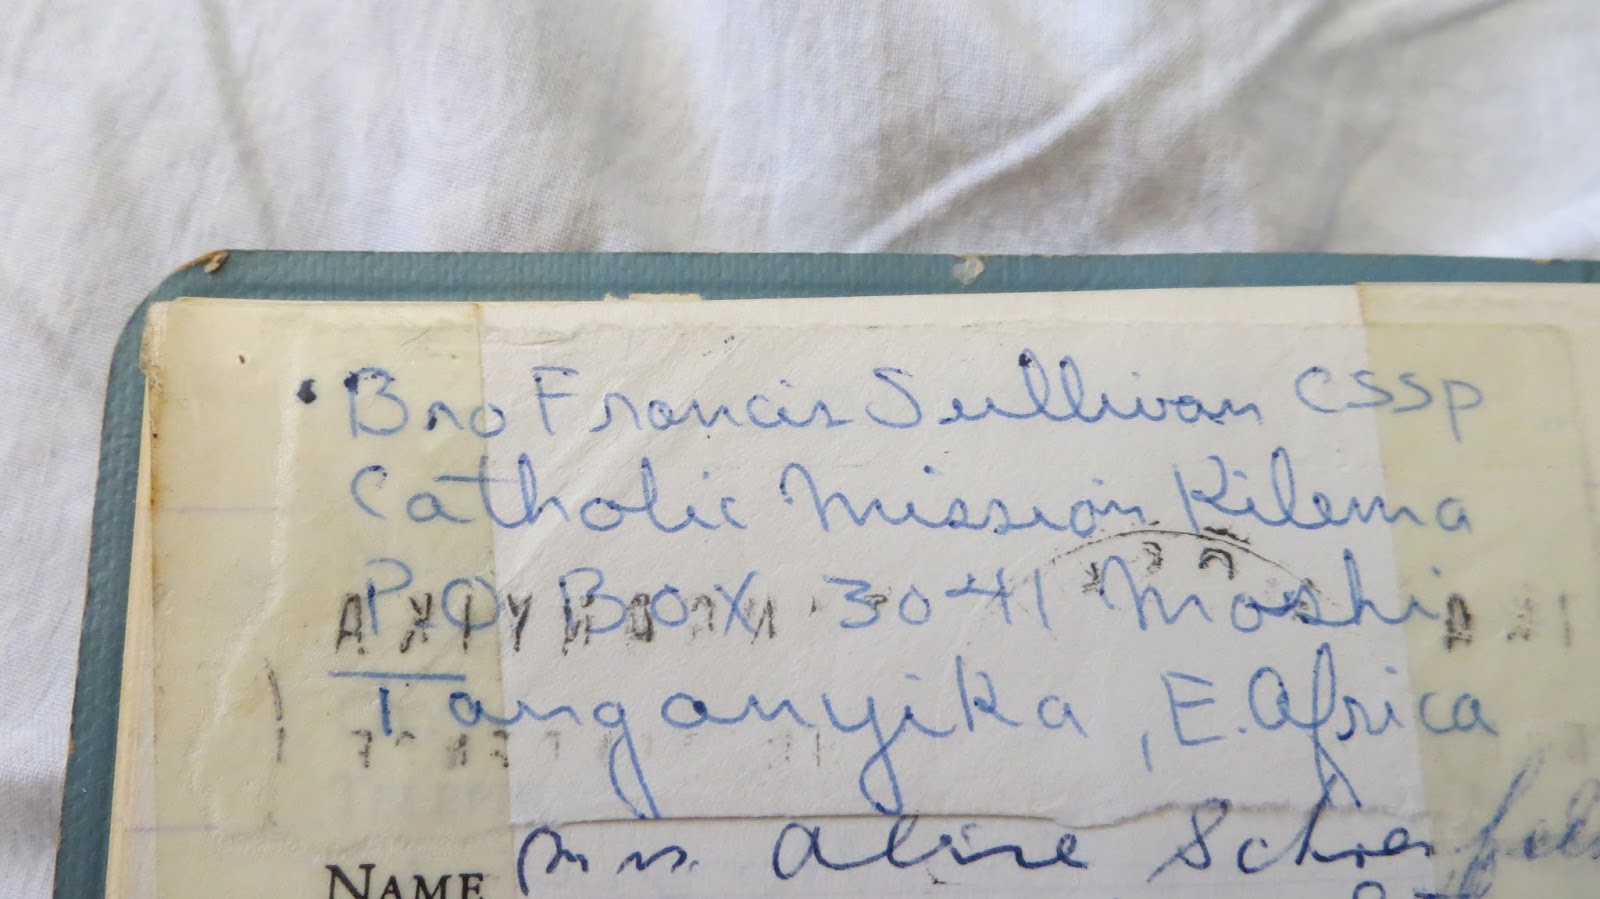 Bro Francis Sullivan CSSp
Catholic Mission Kilema
P.O Box 3041 Moshi
Tanganyika, E. Africa
NAME Mrs. Aline